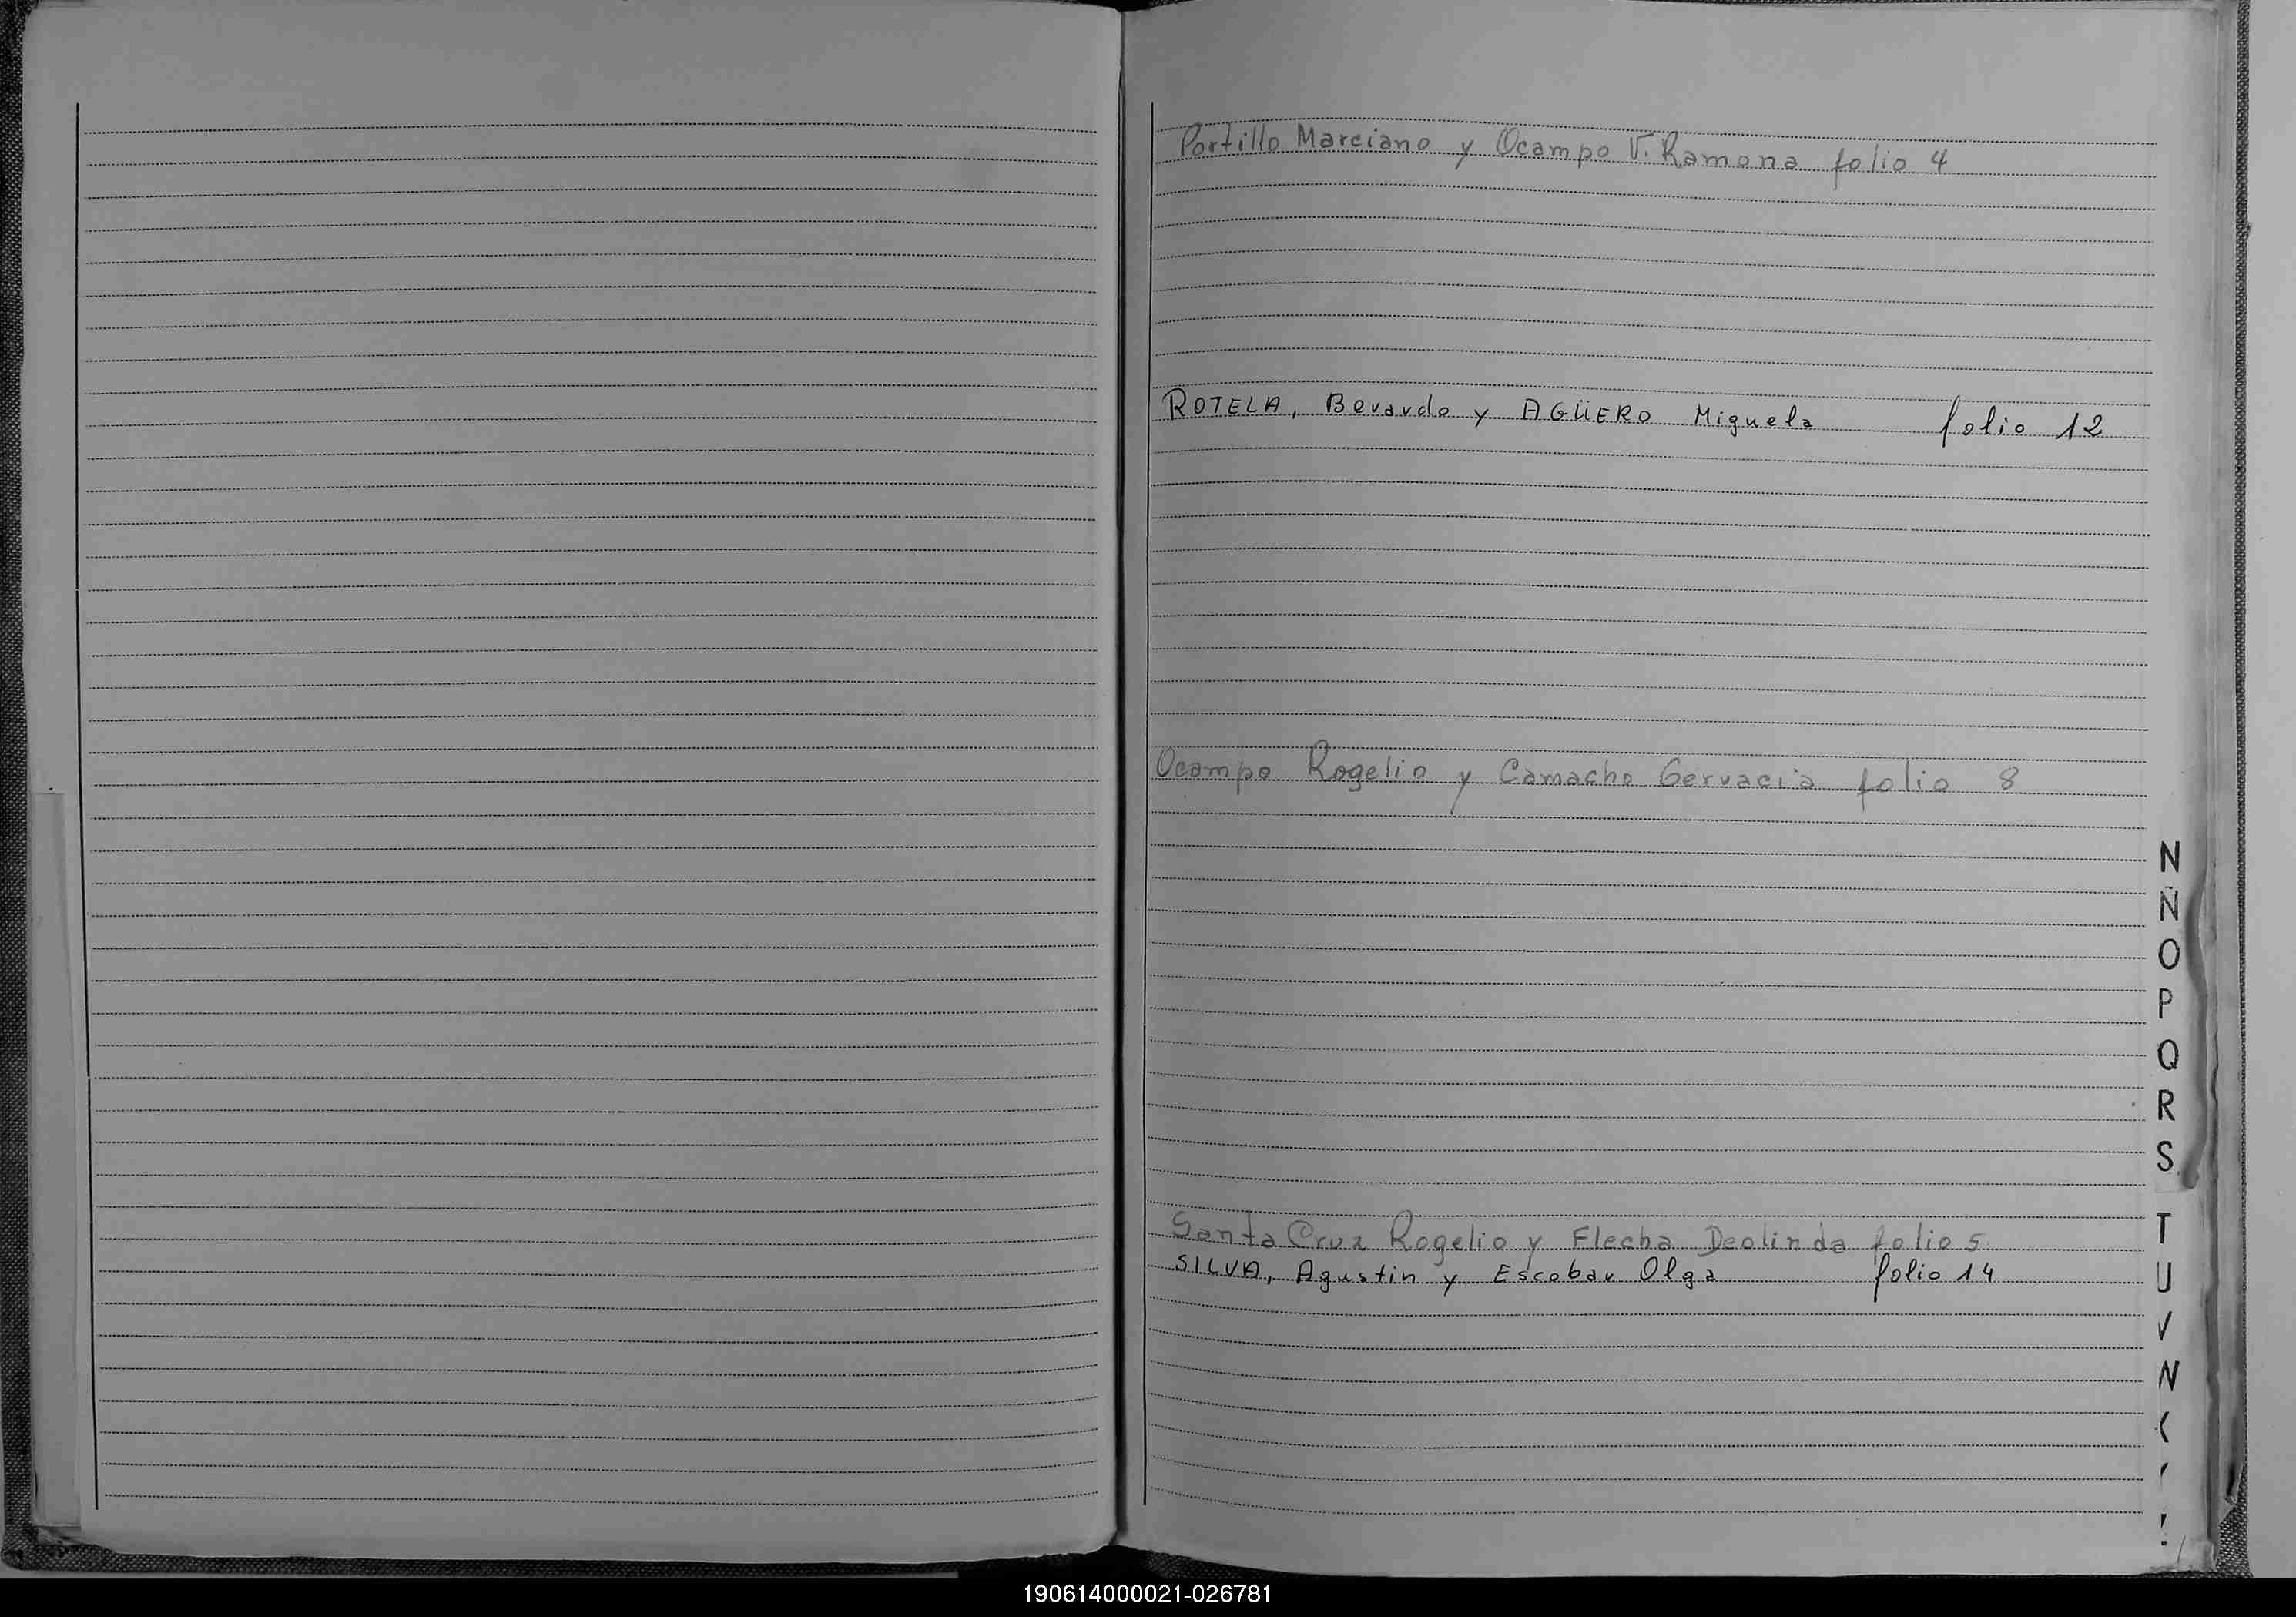 Portillo Marciano y Ocampo V. Ramona folio 4
ROTELA, Berardo y AGÜERO Miguela folio 12
Ocampo Rogelio y Camacho Gervacia folio 8
Santa Cruz Rogelio y Flecha Deolinda folio 5
SILVA, Agustin y Escobar Olga folio 14
N
Ñ
O
P
Q
R
S
T
U
V
190614000021-026781